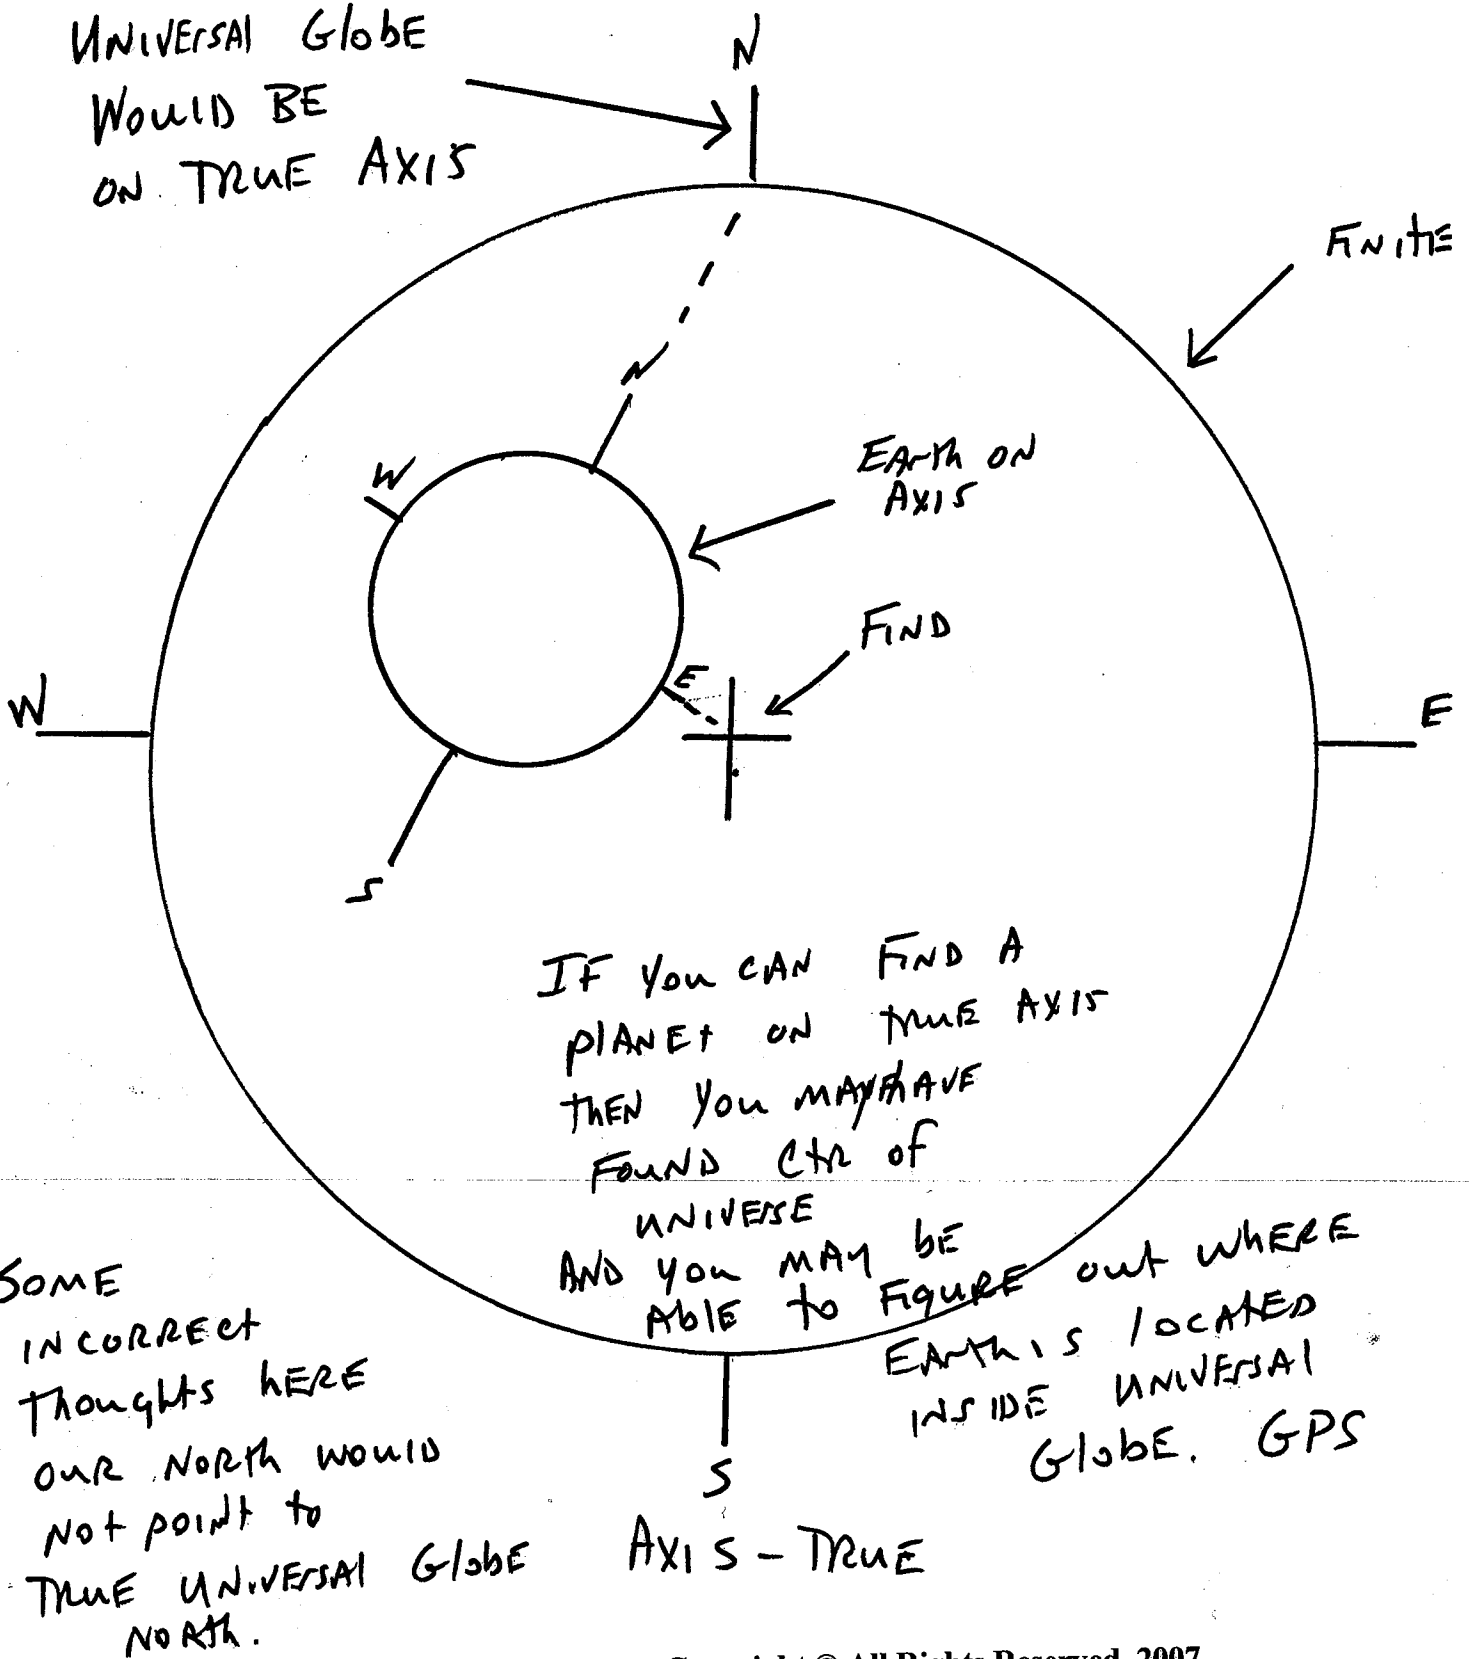 UNIVERSAl GlobE
WOulD BE
ON TRuE AXIS
N
FINItE
N
W
EArth ON
AXIS
FIND
E
W
E
S
IF You CAN FIND A
plANEt ON truE AXIS
thEN you MAY HAVE
FouND Ctr of
uNIVErSE
AND you MAy bE
AblE to FIguRE out WhERE
EArth IS locAtED
INSIDE UNIVErSAl
GlobE. GPS
SOME
INCORREct
thoughts hERE
OuR NORth WOulD
Not poINt to
TRuE UNIVErSAl GlobE
NORth.
S
AXIS - TRuE
Copyright © All Rights Reserved, 2007